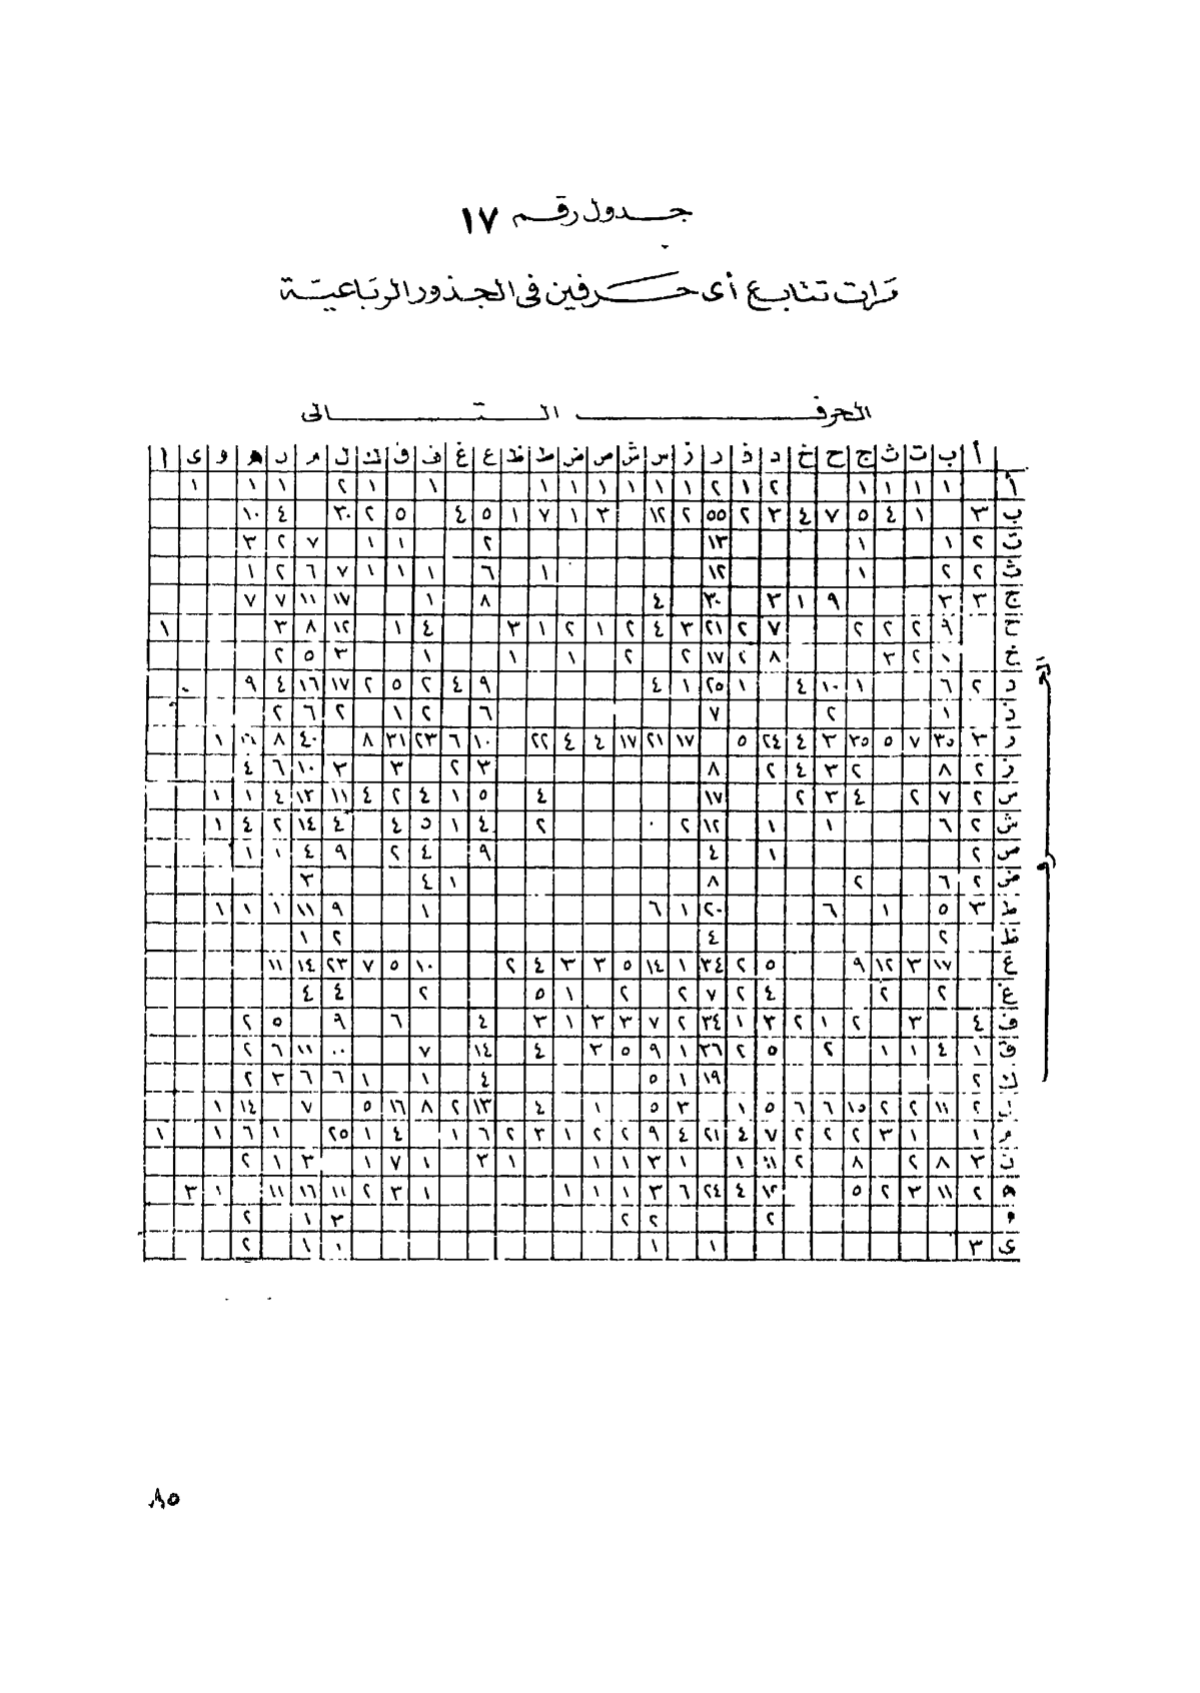 جدول رقم ١٧
مرات تتابع أى حرفين فى الجذور الرباعية
الحرف التالى
أ ب ت ث ج ح خ د ذ ر ز س ش ص ض ط ظ ع غ ف ق ك ل م ن ه و ى ا
أ ١ ١ ١ ١ ٢ ١ ٢ ١ ١ ١ ١ ١ ١ ١ ١ ٢ ١ ١ ١
ب ٣ ١ ٤ ٥ ٧ ٤ ٣ ٢ ٥٥ ٢ ١٢ ٣ ١ ٧ ١ ٥ ٤ ٥ ٢ ٣٠ ٤ ١٠
ت ٢ ١ ١ ١٣ ٢ ١ ١ ٧ ٢ ٣
ث ٢ ٢ ١ ١٢ ١ ٦ ١ ١ ١ ٧ ٦ ٢ ١
ج ٣ ٣ ٩ ١ ٣ ٣٠ ٤ ٨ ١ ١٧ ١١ ٧ ٧
ح ٩ ٢ ٢ ٢ ٧ ٢ ٢١ ٣ ٤ ٢ ١ ٢ ١ ٣ ٤ ١ ١٢ ٨ ٣ ١
خ ١٠ ٢ ٣ ٨ ٢ ١٧ ٢ ٢ ١ ١ ١ ٣ ٥ ٢
د ٢ ٦ ١ ١٠ ٤ ١ ٢٥ ١ ٤ ٩ ٤ ٢ ٥ ٢ ١٧ ١٦ ٤ ٩
ذ ١ ٢ ٧ ٦ ٢ ١ ٢ ٦ ٢
ر ٣ ٣٥ ٧ ٥ ٢٥ ٣ ٤ ٢٤ ٥ ١٧ ٢١ ١٧ ٤ ٤ ٢٢ ١٠ ٦ ٢٣ ٢١ ٨ ٤٠ ٨ ١
ز ٢ ٨ ٢ ٣ ٤ ٢ ٨ ٣ ٢ ٣ ٣ ١٠ ٦ ٤
س ٢ ٧ ٢ ٤ ٣ ٢ ١٧ ٤ ٥ ١ ٤ ٢ ٤ ١١ ١٣ ٤ ١ ١
ش ٢ ٦ ١ ١ ١٢ ٢ ٢ ٤ ١ ٥ ٤ ٤ ١٤ ٢ ٤ ١
ص ٢ ١ ٤ ٩ ٤ ٢ ٩ ٤ ١ ١
ض ٢ ٦ ٢ ٨ ١ ٤ ٣
ط ٣ ٥ ١ ٦ ٢٠ ١ ٦ ١ ٩ ١١ ١ ١ ١
ظ ٢ ٤ ٢ ١
ع ١٧ ٣ ١٢ ٩ ٥ ٢ ٣٤ ١ ١٤ ٥ ٣ ٣ ٤ ٢ ١٠ ٥ ٧ ٢٣ ١٤ ١١
غ ٢ ٢ ٤ ٢ ٧ ٢ ٢ ١ ٥ ٢ ٤ ٤
ف ٤ ٣ ٢ ١ ٢ ٣ ١ ٣٤ ٢ ٧ ٣ ٣ ١ ٣ ٤ ٦ ٩ ٥ ٢
ق ١ ٤ ١ ١ ٢ ٥ ٢ ٢٦ ١ ٩ ٥ ٣ ٤ ١٤ ٧ ١١ ٦ ٢
ك ٢ ١٩ ١ ٥ ٤ ١ ١ ٦ ٦ ٣ ٢
ل ٢ ١١ ٢ ٢ ١٥ ٦ ٦ ٥ ١ ٣ ٥ ١ ٤ ١٣ ٢ ٨ ١٦ ٥ ٧ ١٤ ١
م ١ ١ ٣ ٢ ٢ ٢ ٧ ٤ ٢١ ٤ ٩ ٢ ٢ ١ ٣ ٢ ٦ ١ ٤ ١ ٢٥ ١ ٦ ١ ١
ن ٣ ٨ ٢ ٨ ٢ ١١ ١ ١ ٣ ١ ١ ١ ٣ ١ ٧ ١ ٣ ١ ٢
ه ٢ ١١ ٣ ٢ ٥ ١٢ ٤ ٢٤ ٦ ٣ ١ ١ ١ ١ ٣ ٢ ١١ ١٦ ١١ ١ ٣
و ٢ ٢ ٢ ٣ ١ ٢
ى ٣ ١ ١ ١ ١ ٢
٨٥